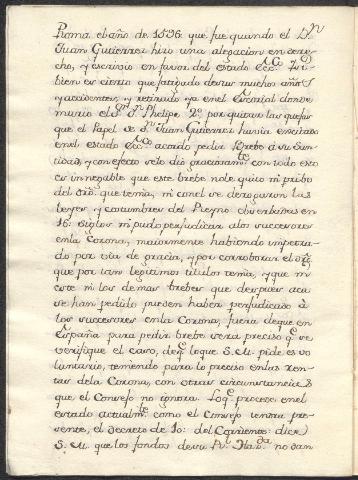 Roma el año de 1596 que fue quando el Dn
Juan Gutierrez hizo una alegacion en dere-
cho, y escrivio en favor del estado Ecc.co Y si
bien es cierto que fatigado de sus muchos años
y accidentes, y retirado ya en el Escorial donde
murio el S.or Dn Phelipe 2.o por quitar las quejas
que el Papel de Dn Juan Gutierrez havia excitado
en el estado Ecc.co acordó pedir Brebe a su San-
tidad, y con efecto selo dió graciosam.te con todo esto
es innegable que este brebe no le quito ni pribo
del dro. que tenia, ni con el se derogaron las
leyes, y costumbres del Reyno observadas en
16. siglos ni pudo perjudicar a los successores
en la Corona, maiormente habiendo impetra-
do por via de gracia, y por corroborar el dro.
que por tan legitimos titulos tenia, y que ni
este ni los demas brebes que despues aca
se han pedido pueden haber perjudicado à
los successores en la Corona, fuera de que en
España para pedir brebe sera preciso q.e se
verifique el caso, de q.e lo que S. M. pide es vo
luntario, teniendo para lo preciso en las ren-
tas de la Corona, con otras circunstancias
que el Consejo no ignora. Lo q.e procede en el
estado actualm.te como el Consejo tendra pre-
sente, el decreto de 10: del Corriente: dice
S. M. que los fondos de su R.l Ha.da no dan